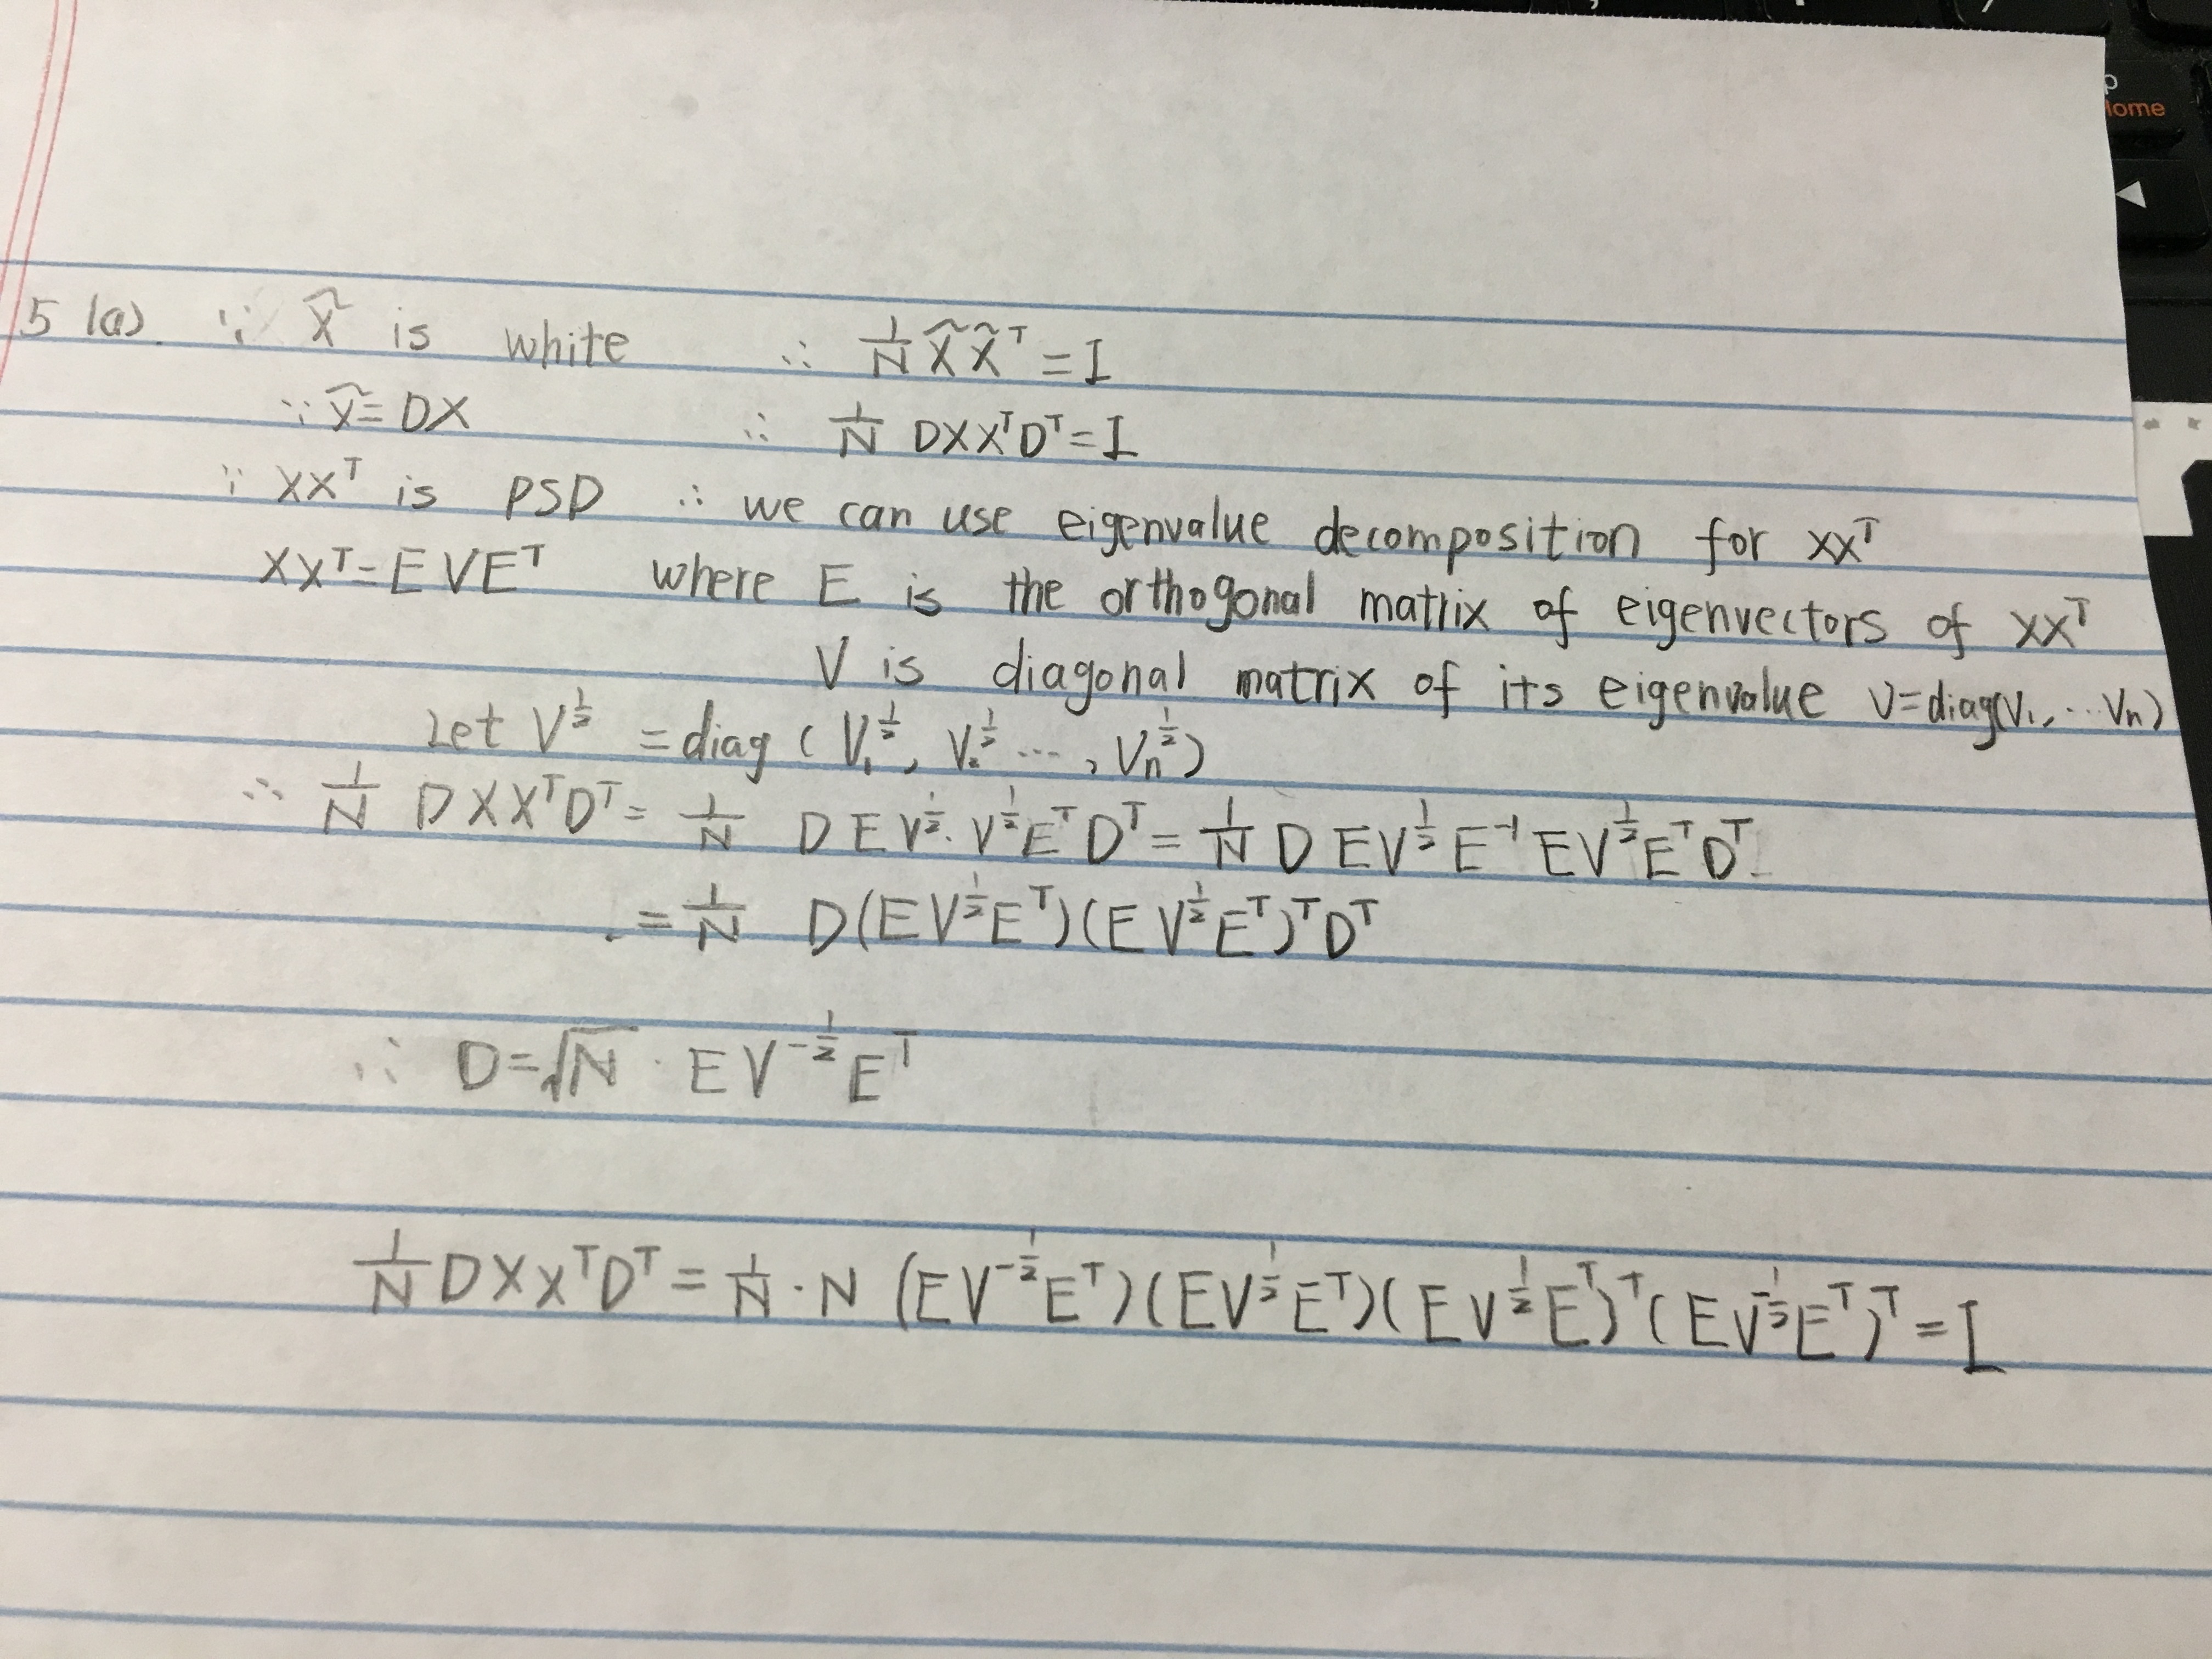 5 (a). ∵ X̃ is white ∴ 1/N X̃X̃ᵀ = I
∵ X̃ = DX ∴ 1/N DXXᵀDᵀ = I
∵ XXᵀ is PSD ∴ we can use eigenvalue decomposition for XXᵀ
XXᵀ = EVEᵀ where E is the orthogonal matrix of eigenvectors of XXᵀ
V is diagonal matrix of its eigenvalue V=diag(V₁, ... Vn)
Let V^½ = diag ( V₁^½, V₂^½ ... , Vn^½ )
∴ 1/N DXXᵀDᵀ = 1/N D E V^½ · V^½ Eᵀ Dᵀ = 1/N D E V^½ E⁻¹ E V^½ Eᵀ Dᵀ
= 1/N D(E V^½ Eᵀ)(E V^½ Eᵀ)ᵀ Dᵀ
∴ D = √N · E V^-½ Eᵀ
1/N DXXᵀDᵀ = 1/N · N (E V^-½ Eᵀ)(E V^½ Eᵀ)(E V^½ Eᵀ)ᵀ(E V^-½ Eᵀ)ᵀ = I
Home